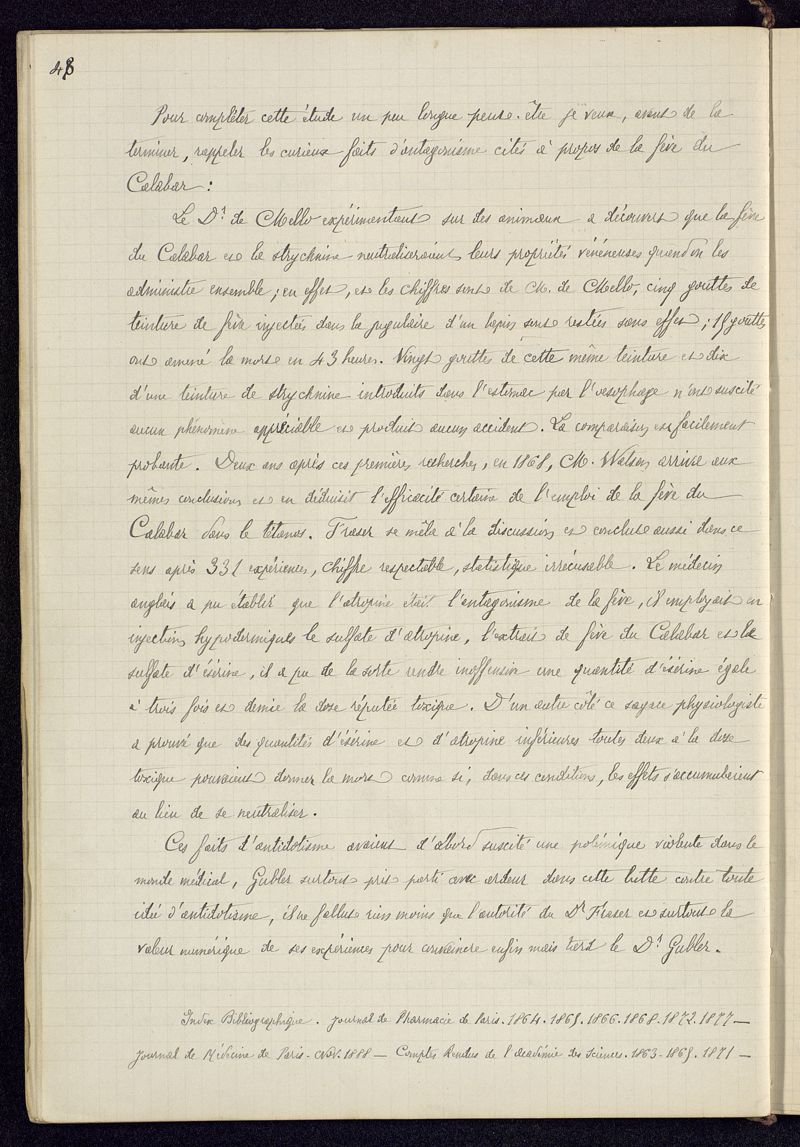 48
Pour compléter cette étude un peu longue peut-être je veux, avant de la
terminer, rappeler les curieux faits d'antagonisme cités à propos de la fève du
Calabar :
Le Dr. de Mello expérimentant sur des animaux a découvert que la fève
du Calabar et la strychnine neutraliseraient leurs propriétés vénéneuses quand on les
administre ensemble ; en effet, et les chiffres sont de M. de Mello, cinq gouttes de
teinture de fève injectées dans la jugulaire d'un lapin sont restées sans effet ; 15 gouttes
ont amené la mort en 43 heures. Vingt gouttes de cette même teinture et dix
d'une teinture de strychnine introduits dans l'estomac par l'oesophage n'ont suscité
aucun phénomène appréciable et produit aucun accident. La comparaison est facilement
probante. Deux ans après ces premières recherches, en 1868, M. Watson arrive aux
mêmes conclusions et en déduisit l'efficacité certaine de l'emploi de la fève du
Calabar dans le tétanos. Fraser se mêla à la discussion et conclut aussi dans ce
sens après 331 expériences, chiffre respectable, statistique irrécusable. Le médecin
anglais a pu établir que l'atropine était l'antagonisme de la fève, il employait en
injections hypodermiques le sulfate d'atropine, l'extrait de fève du Calabar et le
sulfate d'ésérine, il a pu de la sorte rendre inoffensive une quantité d'ésérine égale
à trois fois et demie la dose réputée toxique. D'un autre côté ce sagace physiologiste
a prouvé que des quantités d'ésérine et d'atropine inférieures toutes deux à la dose
toxique pouvaient donner la mort comme si, dans ces conditions, les effets s'accumulaient
au lieu de se neutraliser.
Ces faits d'antidotisme avaient d'abord suscité une polémique violente dans le
monde médical, Gubler surtout prit parti avec ardeur dans cette lutte contre toute
idée d'antidotisme, il ne fallut rien moins que l'autorité du Dr Fraser et surtout la
valeur numérique de ses expériences pour convaincre enfin mais tard le Dr Gubler.
Index Bibliographique. Journal de Pharmacie de Paris. 1864. 1865. 1866. 1868. 1872. 1877 —
Journal de Médecine de Paris - Nov. 1888 — Comptes Rendus de l'Académie des Sciences. 1863 - 1865. 1871 —